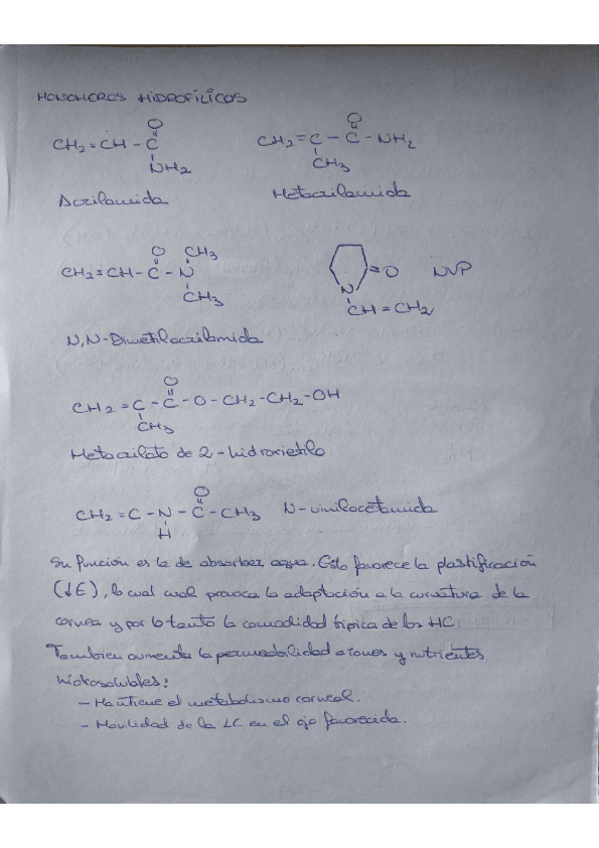 MONOMEROS HIDROFÍLICOS
O O
CH2=CH-C CH2=C-C-NH2
NH2 CH3
Acrilamida Metacrilamida
O CH3
CH2=CH-C-N =O NVP
CH3 N
CH=CH2
N,N-Dimetilacrilamida
O
CH2=C-C-O-CH2-CH2-OH
CH3
Metacrilato de 2-hidroxietilo
O
CH2=C-N-C-CH3 N-vinilacetamida
H
Su función es la de absorber agua. Esto favorece la plastificación
(↓E), lo cual cual provoca la adaptación a la curvatura de la
cornea y por lo tanto la comodidad típica de los HC.
Tambien aumenta la permeabilidad a iones y nutrientes
hidrosolubles:
- Mantiene el metabolismo corneal.
- Movilidad de la LC en el ojo favorecida.